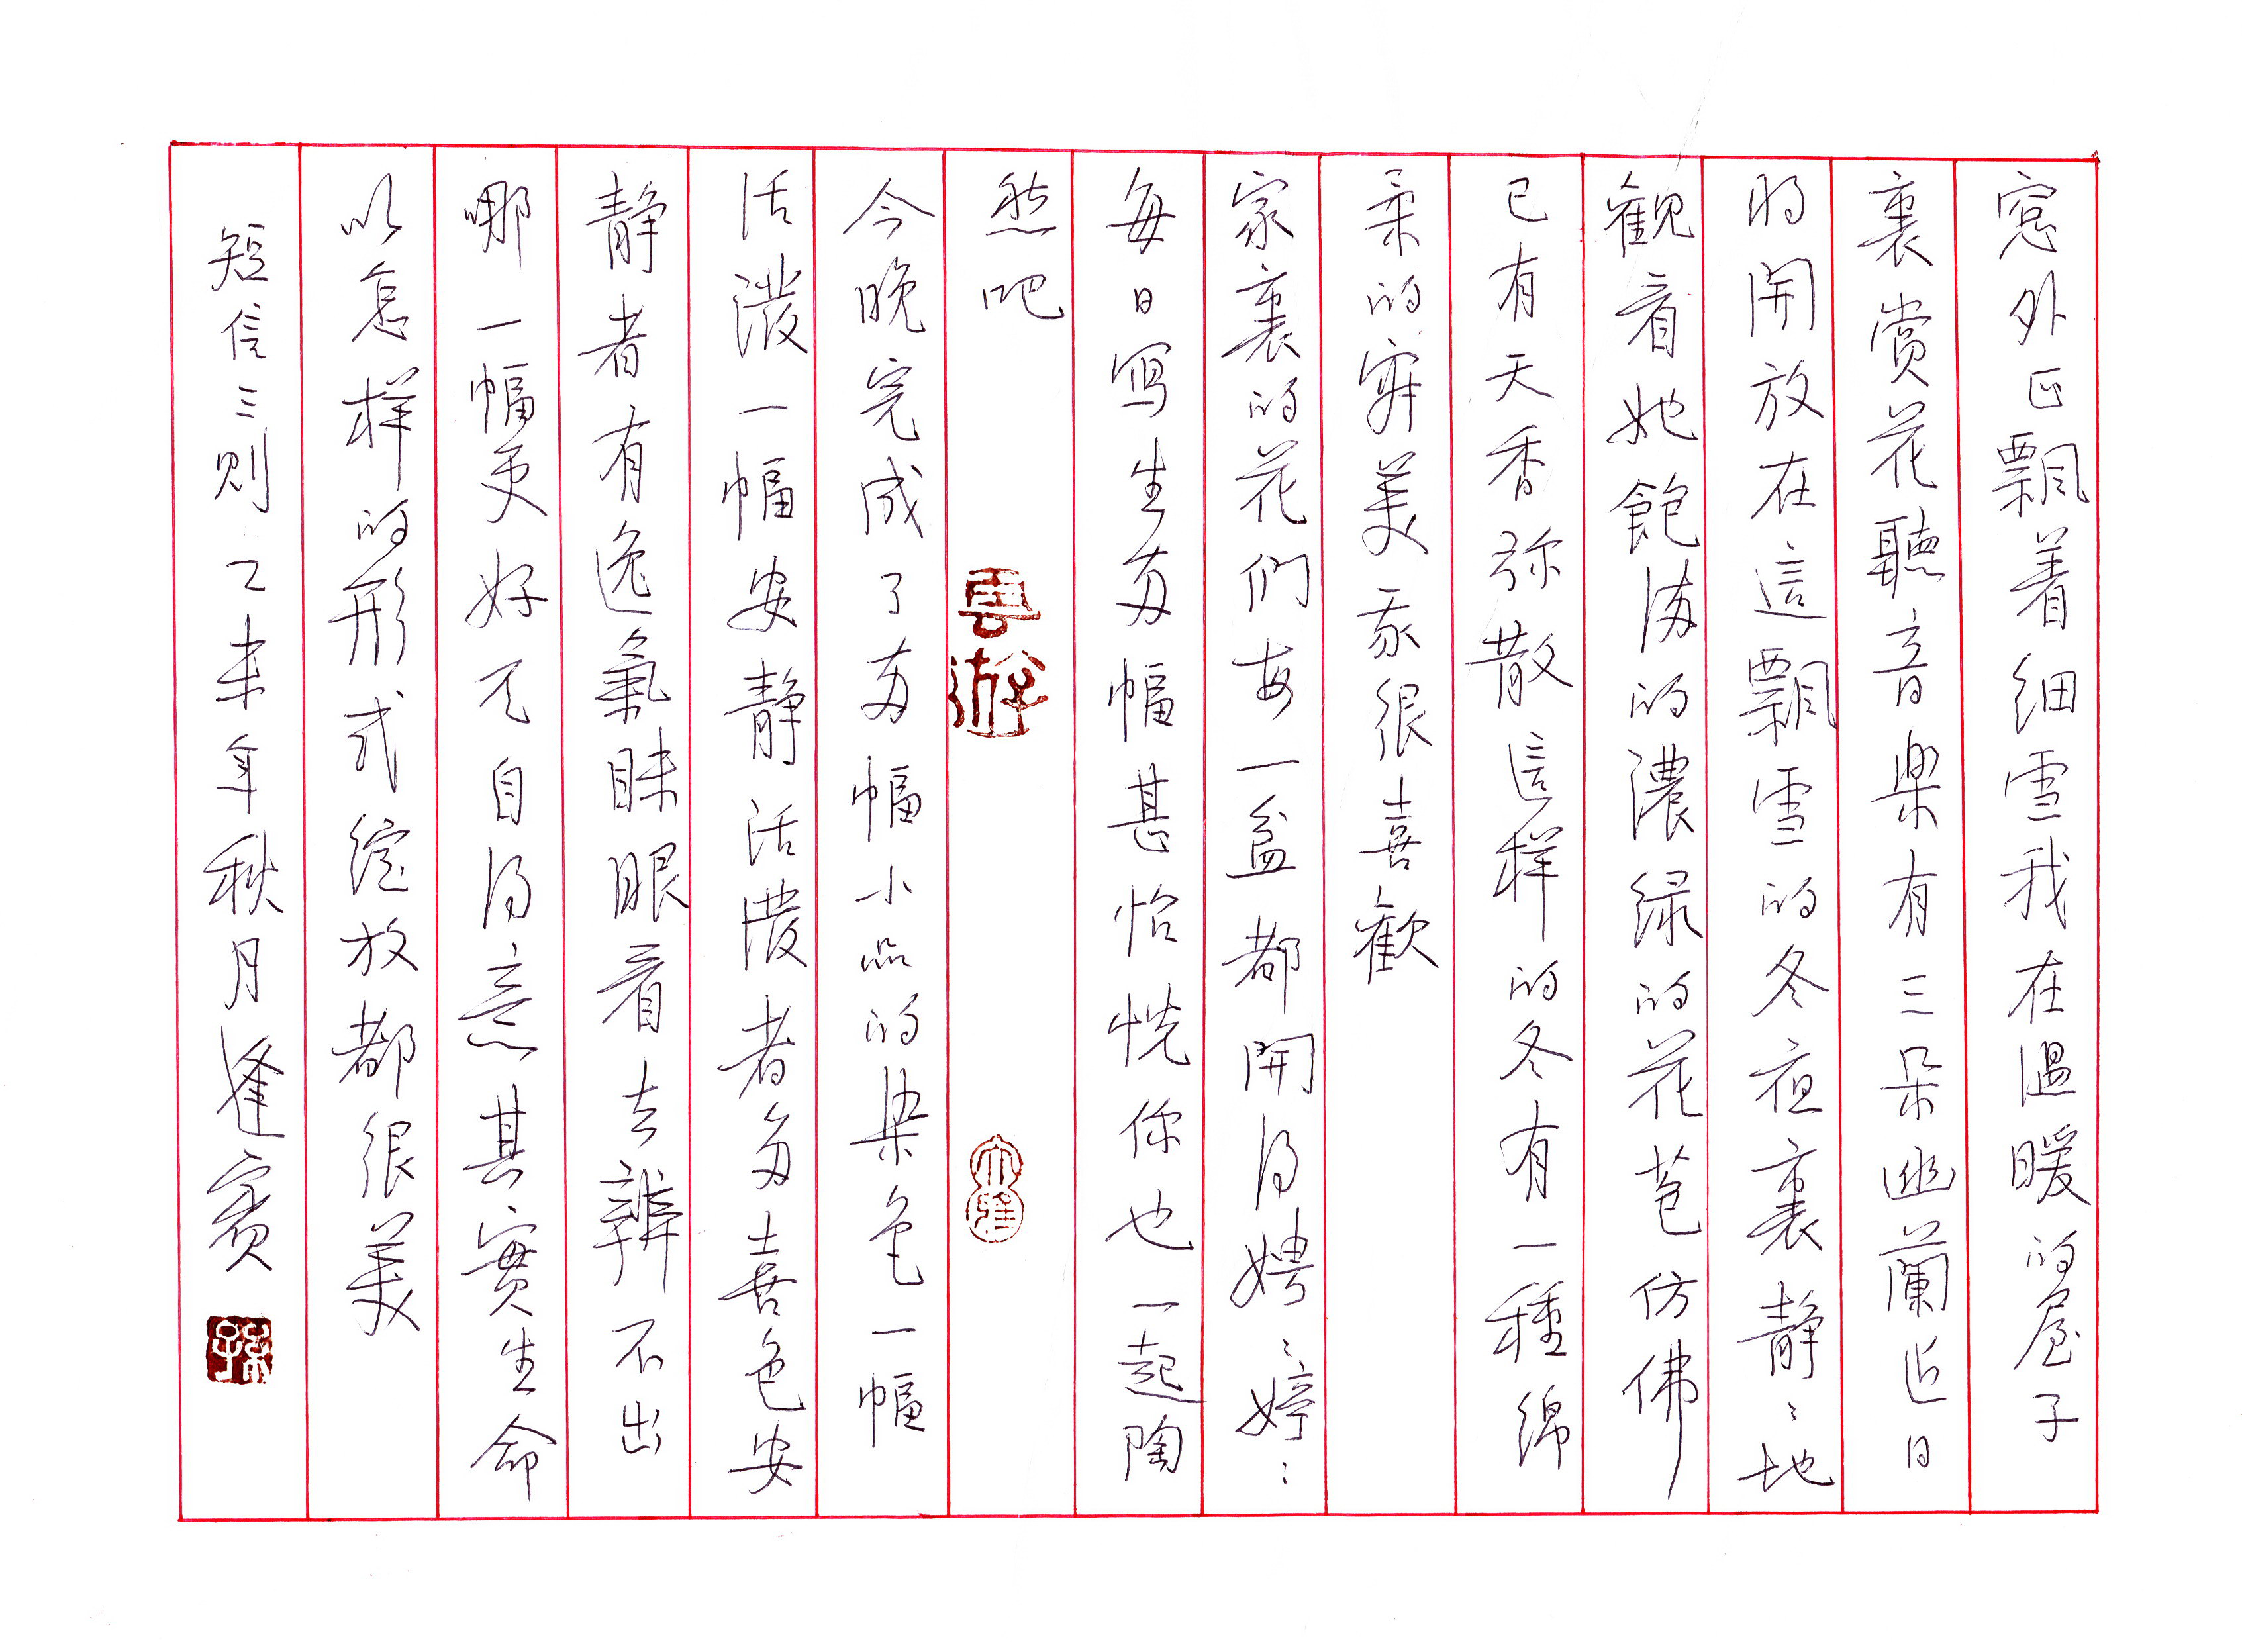 窓外正飄着细雪我在温暖的屋子
裏赏花聽音樂有三朵幽蘭近日
将開放在這飄雪的冬夜裏静〻地
觀看她飽满的濃绿的花苞仿佛
已有天香弥散這样的冬有一種綿
柔的寂美我很喜歡
家裏的花們每一盆都開得娉〻婷〻
每日写生两幅甚怡恍你也一起陶
然吧
雲游
大雅
今晚完成了两幅小品的染色一幅
活潑一幅安静活潑者多喜色安
静者有逸氣眯眼看去辨不出
哪一幅更好只自得意其實生命
以怎样的形式綻放都很美
短信三则 乙未年秋月逢賓